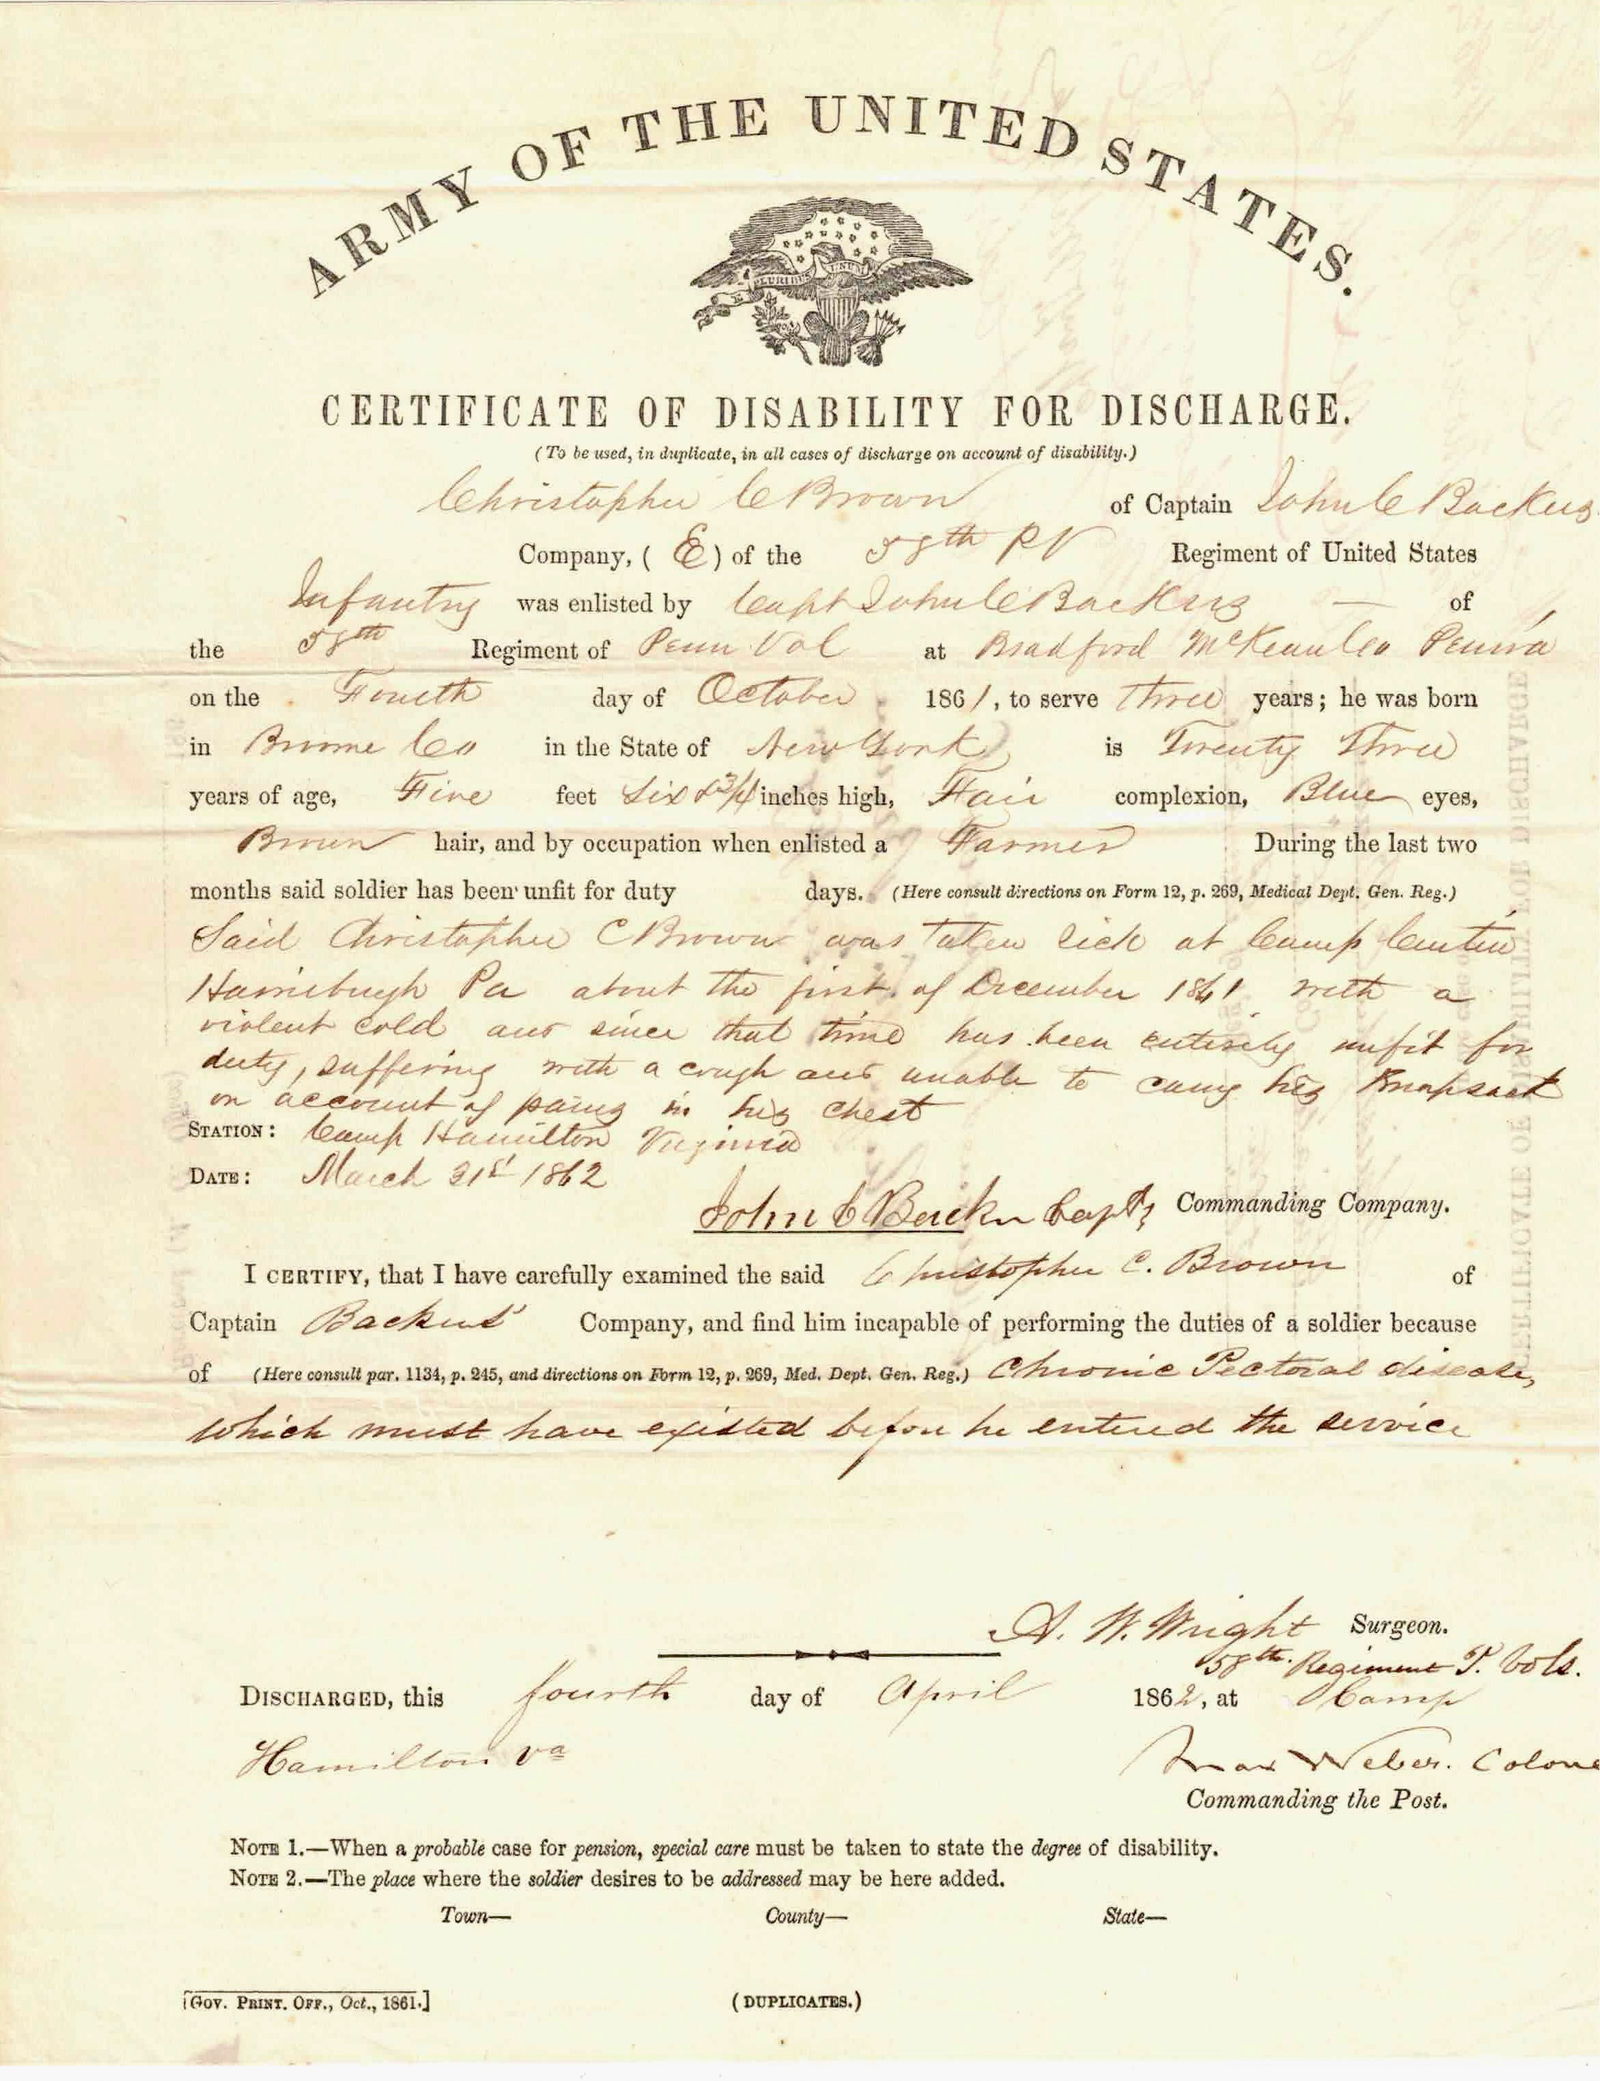 ARMY OF THE UNITED STATES.
E PLURIBUS UNUM
CERTIFICATE OF DISABILITY FOR DISCHARGE.
(To be used, in duplicate, in all cases of discharge on account of disability.)
Christopher C Brown of Captain John C Backus
Company, (E) of the 58th PV Regiment of United States
Infantry was enlisted by Capt John C Backus — of
the 58th Regiment of Penn Vol at Bradford McKean Co Penna
on the Fourth day of October 1861, to serve Three years; he was born
in Broome Co in the State of New York is Twenty Three
years of age, Five feet Six & 3/4 inches high, Fair complexion, Blue eyes,
Brown hair, and by occupation when enlisted a Farmer During the last two
months said soldier has been unfit for duty days. (Here consult directions on Form 12, p. 269, Medical Dept. Gen. Reg.)
Said Christopher C Brown was taken sick at Camp Curtin
Harrisburgh Pa about the first of December 1861 with a
violent cold and since that time has been entirely unfit for
duty, suffering with a cough and unable to carry his Knapsack
on account of pains in his chest
STATION: Camp Hamilton Virginia
DATE: March 31st 1862
John C Backus Capt, Commanding Company.
I CERTIFY, that I have carefully examined the said Christopher C. Brown of
Captain Backus' Company, and find him incapable of performing the duties of a soldier because
of (Here consult par. 1134, p. 245, and directions on Form 12, p. 269, Med. Dept. Gen. Reg.) Chronic Pectoral disease,
which must have existed before he entered the service
A. W. Wright Surgeon.
58th Regiment P. Vols.
DISCHARGED, this fourth day of April 1862, at Camp
Hamilton Va
Max Weber. Colone
Commanding the Post.
NOTE 1.—When a probable case for pension, special care must be taken to state the degree of disability.
NOTE 2.—The place where the soldier desires to be addressed may be here added.
Town— County— State—
[GOV. PRINT. OFF., Oct., 1861.] (DUPLICATES.)